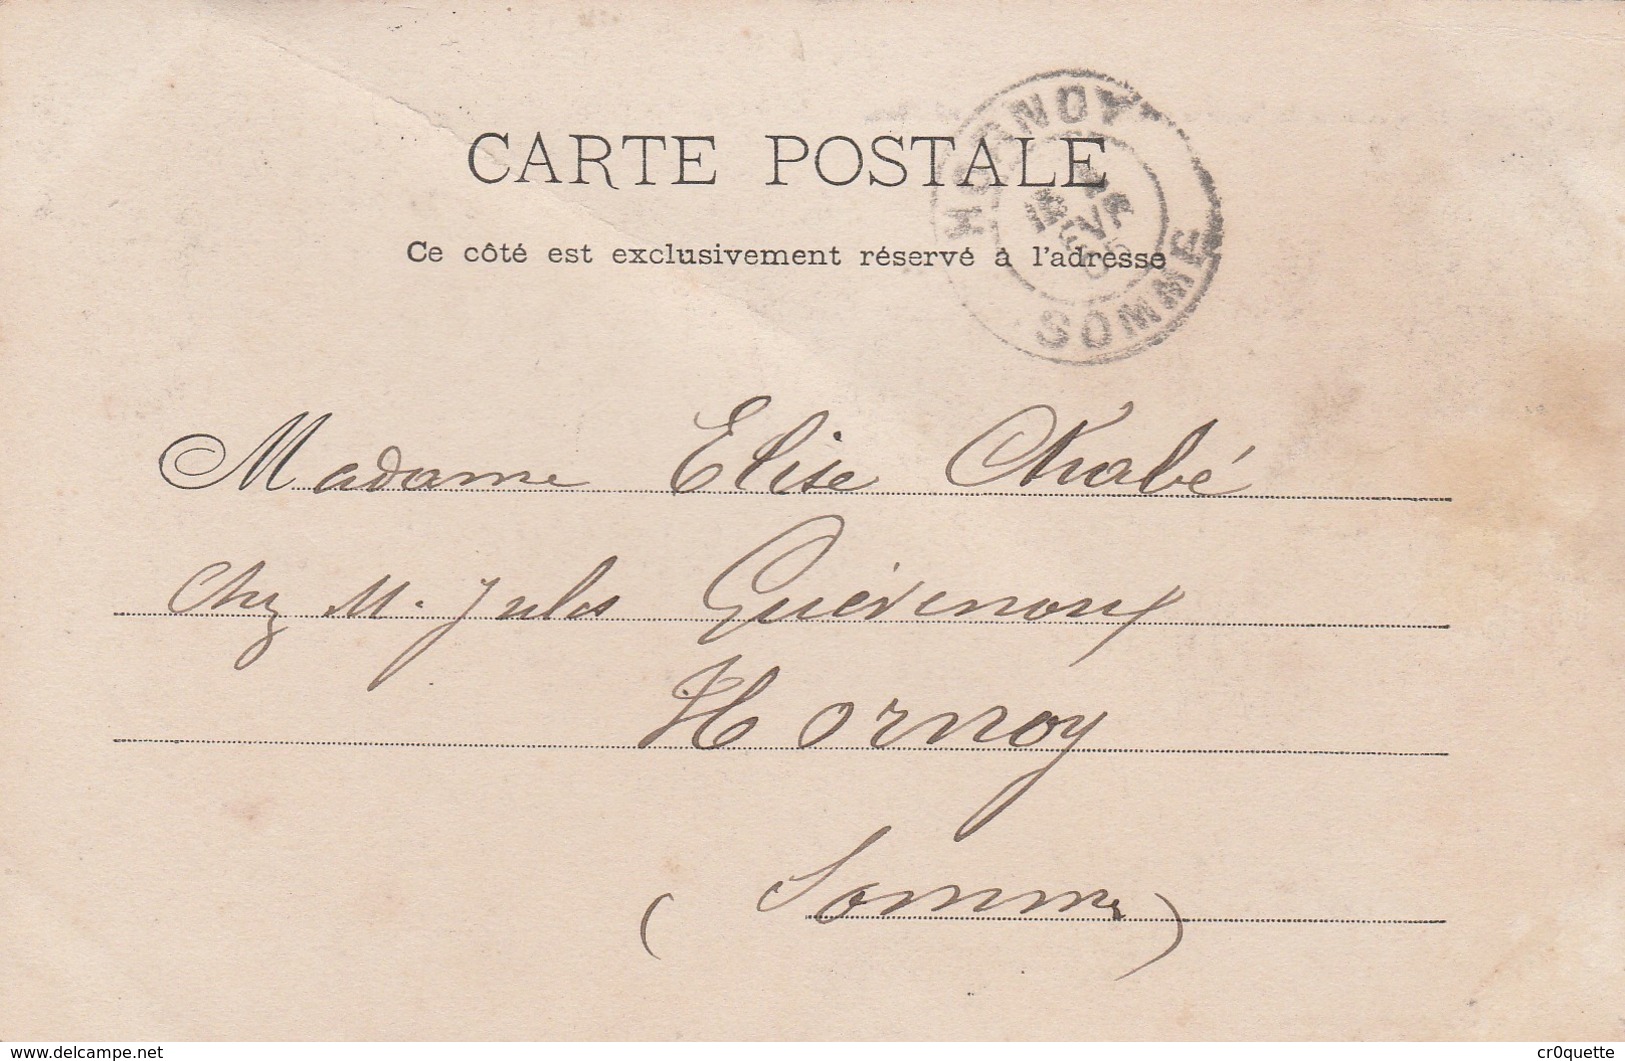 CARTE POSTALE
Ce côté est exclusivement réservé à l'adresse
HORNOY
SOMME
Madame Elise
Chez M. Jules
Hornoy
(Somme)
www.delcampe.net
cr0quette